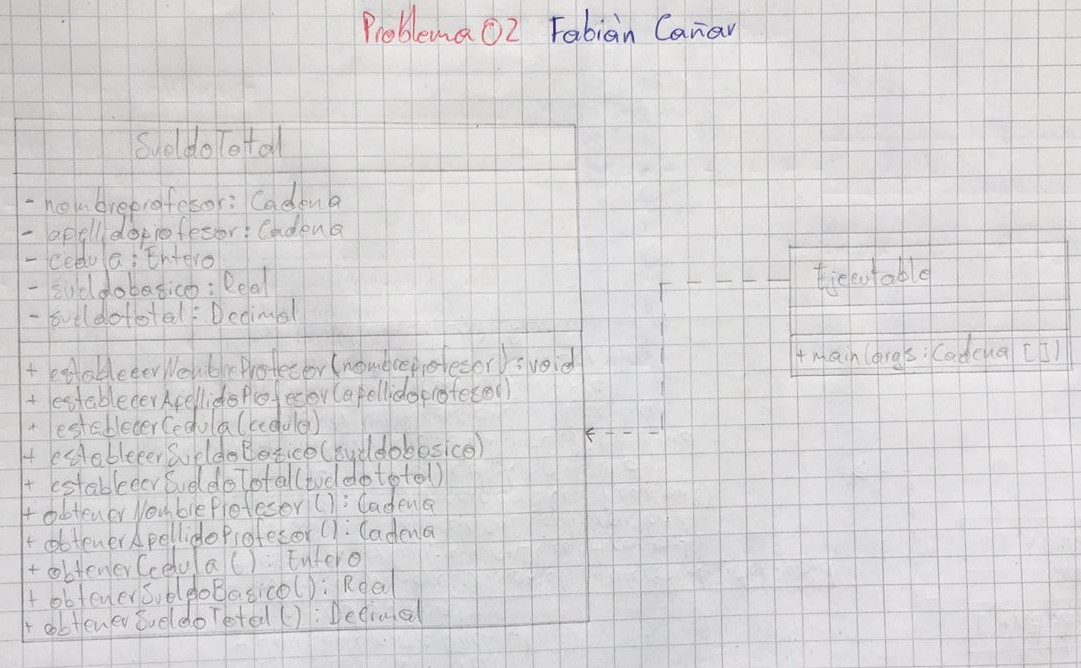 Problema 02 Fabián Cañar
SueldoTotal
- nombreprofesor: Cadena
- apellidoprofesor: Cadena
- cedula: Entero
- sueldobasico: Real
- sueldototal: Decimal
+ establecerNombreProfesor(nombreprofesor): void
+ establecerApellidoProfesor(apellidoprofesor)
+ establecerCedula(cedula)
+ establecerSueldoBasico(sueldobasico)
+ establecerSueldoTotal(sueldototal)
+ obtenerNombreProfesor(): Cadena
+ obtenerApellidoProfesor(): Cadena
+ obtenerCedula(): Entero
+ obtenerSueldoBasico(): Real
+ obtenerSueldoTotal(): Decimal
Ejecutable
+ main(args: Cadena [])